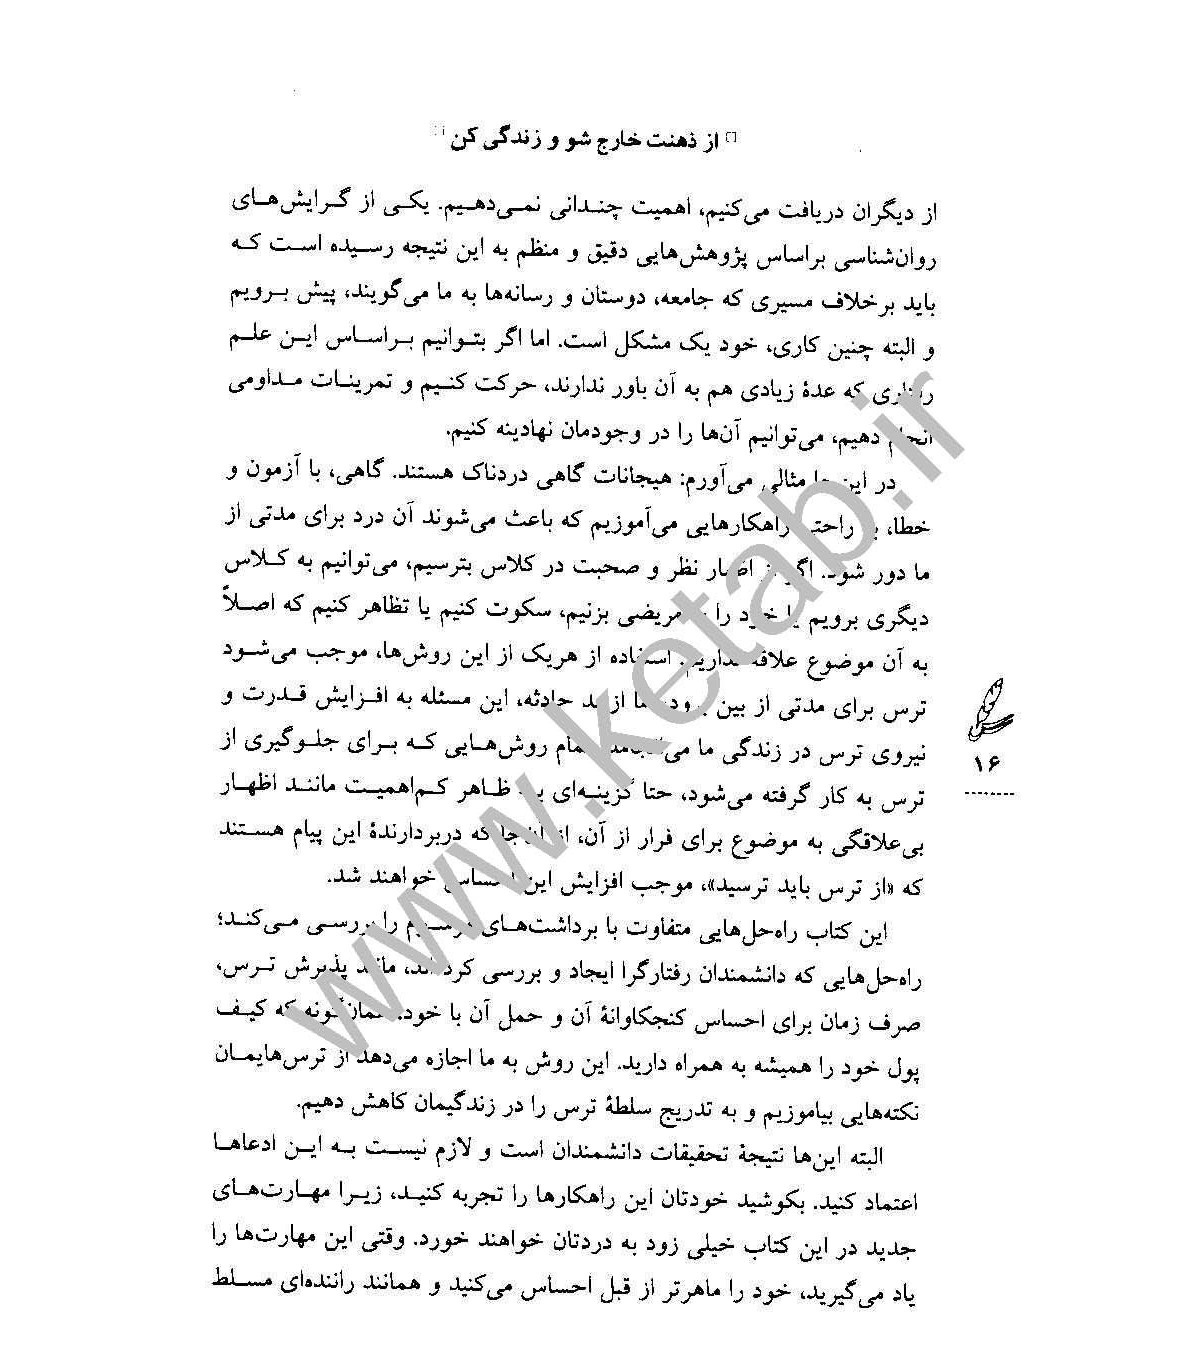 از ذهنت خارج شو و زندگی کن
از دیگران دریافت می‌کنیم، اهمیت چندانی نمی‌دهیم. یکی از گرایش‌های
روان‌شناسی براساس پژوهش‌هایی دقیق و منظم به این نتیجه رسیده است که
باید برخلاف مسیری که جامعه، دوستان و رسانه‌ها به ما می‌گویند، پیش برویم
و البته چنین کاری، خود یک مشکل است. اما اگر بتوانیم براساس این علم
رفتاری که عدهٔ زیادی هم به آن باور ندارند، حرکت کنیم و تمرینات مداومی
انجام دهیم، می‌توانیم آن‌ها را در وجودمان نهادینه کنیم.
در این‌جا مثالی می‌آورم: هیجانات گاهی دردناک هستند. گاهی، با آزمون و
خطا، به راحتی راهکارهایی می‌آموزیم که باعث می‌شوند آن درد برای مدتی از
ما دور شود. اگر از اظهار نظر و صحبت در کلاس بترسیم، می‌توانیم به کلاس
دیگری برویم یا خود را به مریضی بزنیم، سکوت کنیم یا تظاهر کنیم که اصلاً
به آن موضوع علاقه نداریم. استفاده از هریک از این روش‌ها، موجب می‌شود
ترس برای مدتی از بین برود، اما از بد حادثه، این مسئله به افزایش قدرت و
نیروی ترس در زندگی ما می‌انجامد. تمام روش‌هایی که برای جلوگیری از
ترس به کار گرفته می‌شود، حتا گزینه‌ای به ظاهر کم‌اهمیت مانند اظهار
بی‌علاقگی به موضوع برای فرار از آن، از آن‌جا که دربردارندهٔ این پیام هستند
که «از ترس باید ترسید»، موجب افزایش این احساس خواهند شد.
این کتاب راه‌حل‌هایی متفاوت با برداشت‌های مرسوم را بررسی می‌کند؛
راه‌حل‌هایی که دانشمندان رفتارگرا ایجاد و بررسی کرده‌اند، مانند پذیرش ترس،
صرف زمان برای احساس کنجکاوانهٔ آن و حمل آن با خود. همان‌گونه که کیف
پول خود را همیشه به همراه دارید. این روش به ما اجازه می‌دهد از ترس‌هایمان
نکته‌هایی بیاموزیم و به تدریج سلطهٔ ترس را در زندگیمان کاهش دهیم.
البته این‌ها نتیجهٔ تحقیقات دانشمندان است و لازم نیست به این ادعاها
اعتماد کنید. بکوشید خودتان این راهکارها را تجربه کنید، زیرا مهارت‌های
جدید در این کتاب خیلی زود به دردتان خواهند خورد. وقتی این مهارت‌ها را
یاد می‌گیرید، خود را ماهرتر از قبل احساس می‌کنید و همانند راننده‌ای مسلط
۱۶
www.ketab.ir